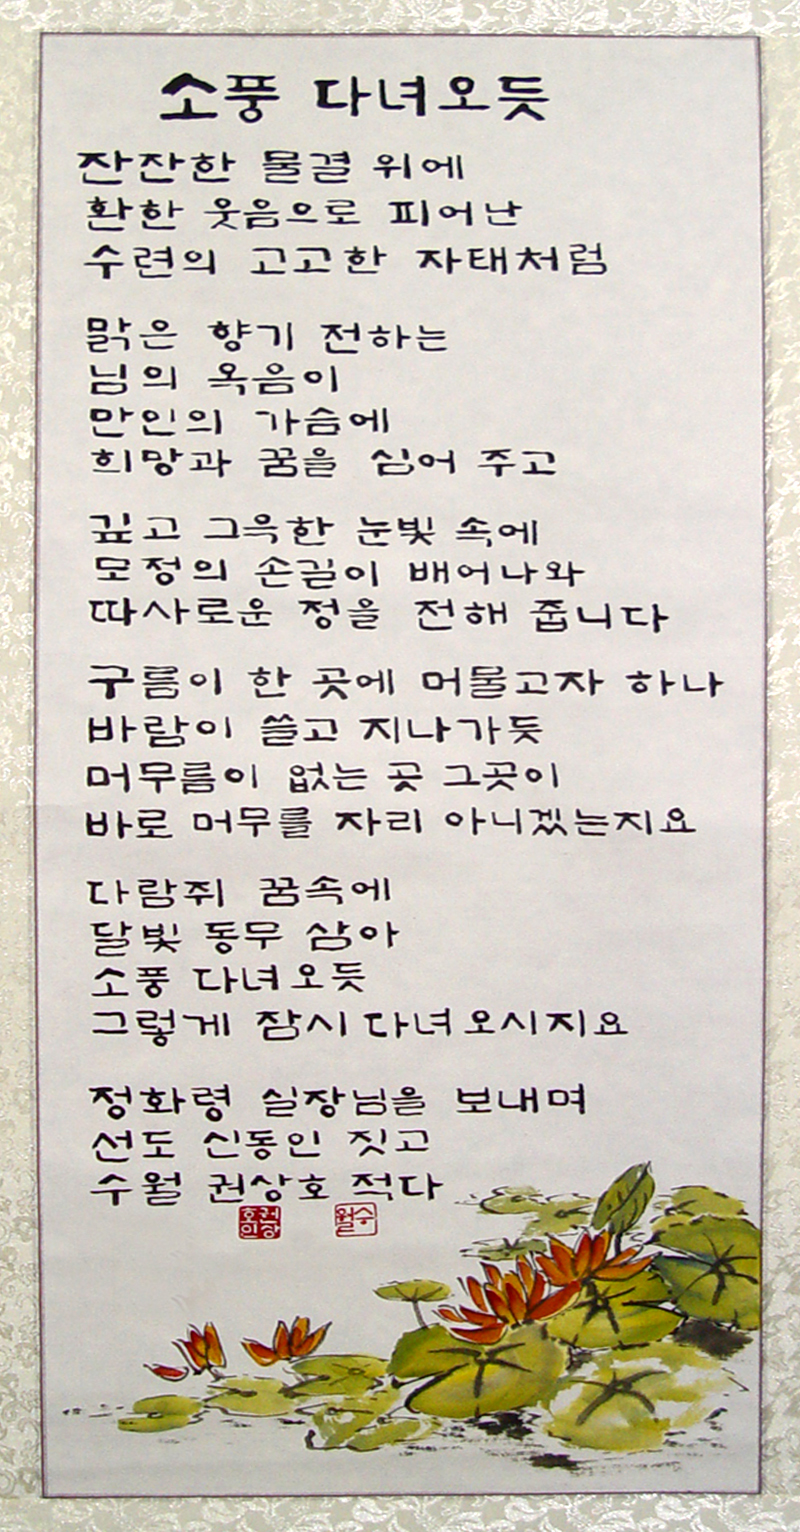 소풍 다녀오듯
잔잔한 물결 위에
환한 웃음으로 피어난
수련의 고고한 자태처럼
맑은 향기 전하는
님의 옥음이
만인의 가슴에
희망과 꿈을 심어 주고
깊고 그윽한 눈빛 속에
모정의 손길이 배어나와
따사로운 정을 전해 줍니다
구름이 한 곳에 머물고자 하나
바람이 쓸고 지나가듯
머무름이 없는 곳 그곳이
바로 머무를 자리 아니겠는지요
다람쥐 꿈속에
달빛 동무 삼아
소풍 다녀오듯
그렇게 잠시 다녀오시지요
정화령 실장님을 보내며
선도 신동인 짓고
수월 권상호 적다
수월